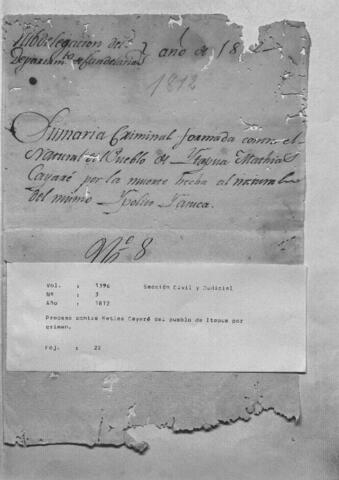 Subdelegacion del año de 18
Departamto de Candelaria
1812
Sumaria Criminal formada contra el
Natural del Pueblo de Ytapua Mathias
Cayaré por la muerte hecha al natural
del mismo Ypolito
No 8
Vol. : 1396 Sección Civil y Judicial
Nº : 3
Año : 1812
Proceso contra Matias Cayaré del pueblo de Itapua por
crimen.
Foj. : 22